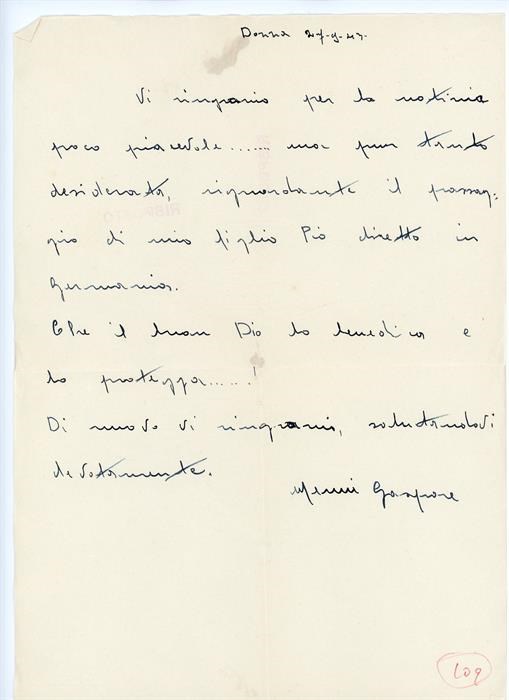 Donna 27-9-43.
Vi ringrazio per la notizia
poco piacevole...... ma pur tanto
desiderata, riguardante il passag=
gio di mio figlio Pio diretto in
Germania.
Che il buon Dio lo benedica e
lo protegga......!
Di nuovo vi ringrazio, salutandovi
devotamente.
Menni Gaspare
RISPOSTO
109